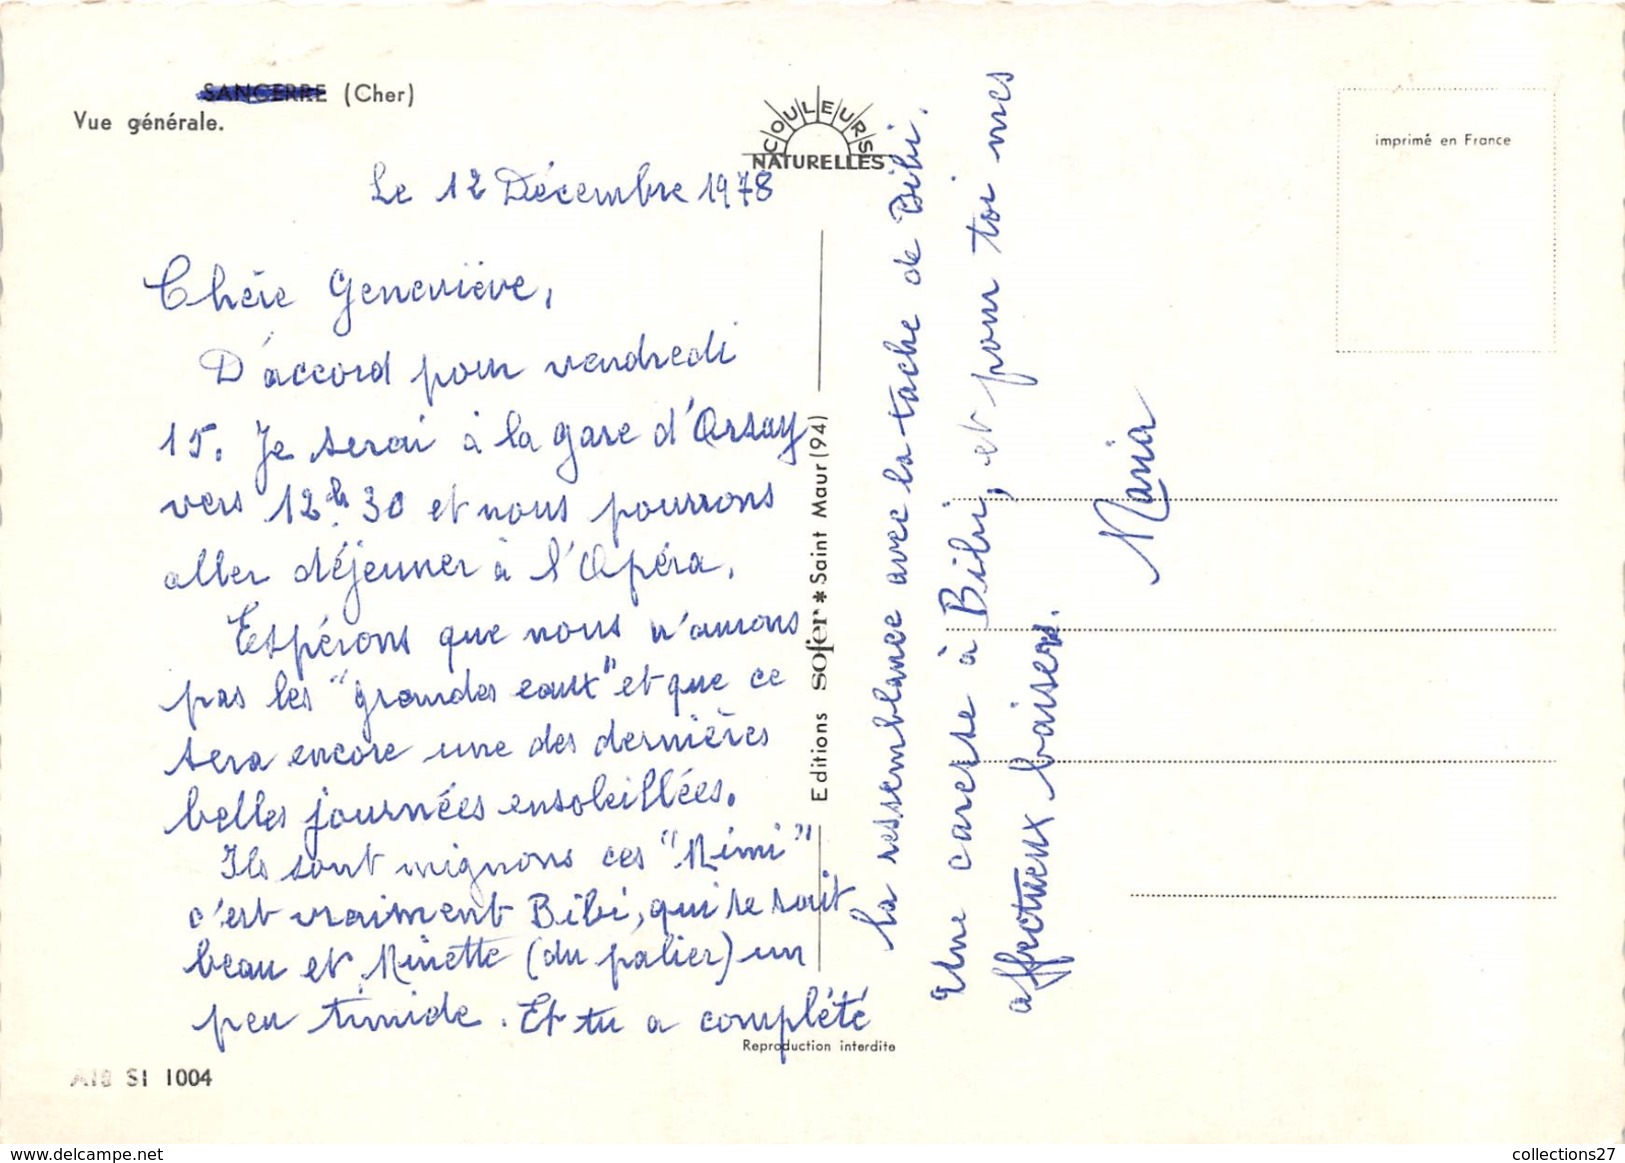 SANCERRE (Cher)
Vue générale.
COULEURS
NATURELLES
imprimé en France
Le 12 Décembre 1978
Chère Geneviève,
D'accord pour vendredi
15. Je serai à la gare d'Orsay
vers 12h30 et nous pourrons
aller déjeuner à l'Opéra.
Espérons que nous n'aurons
pas les "grandes eaux" et que ce
sera encore une des dernières
belles journées ensoleillées.
Ils sont mignons ces "Mimi"
c'est vraiment Bibi, qui se sait
beau et Minette (du palier) un
peu timide. Et tu a complété
la ressemblance avec la tache de Bibi.
Une caresse à Bibi, et pour toi mes
affectueux baisers.
Maria
Editions sofer * Saint Maur (94)
Reproduction interdite
A18 SI 1004
www.delcampe.net
collections27